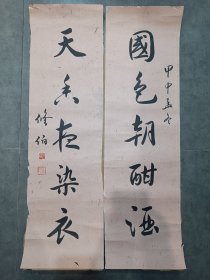 甲申孟冬
國色朝酣酒
天香夜染衣
修伯